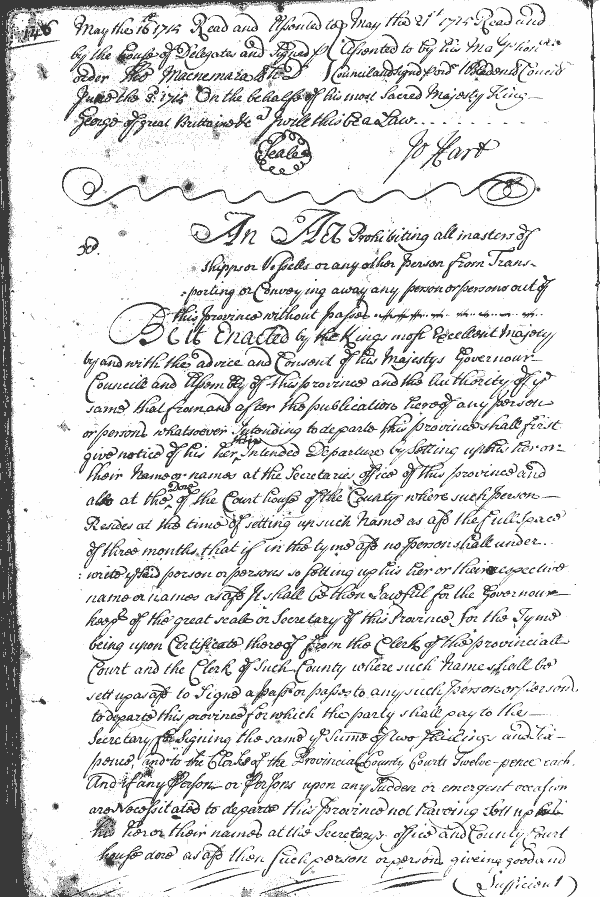 148
May the 16th 1715 Read and Assented to
by the house of Delegates and Signed p
order Tho Macnemara Cl
May the 21st 1715 Read and
Assented to by his Majtys honble
Councill and Signd p ord
June the 3d 1715 On the behalfe of his most Sacred Majesty King
George of great Brittaine &ca I will this be a Law
Seale
Jo Hart
An Act Prohibiting all masters of
Shipps or Vessells or any other Person from Trans-
porting or Conveying away any person or persons out of
this Province without passes
Be it Enacted by the Kings most Excellent Majesty
by and with the advice and Consent of his Majestys Governour
Councill and Assembly of this province and the Authority of ye
same that from and after the publication hereof any person
or persons whatsoever Intending to departe this Province shall first
give notice of his her or their Intended Departure by Setting up his her or
their Name or names at the Secretaries office of this province and
also at the Dore of the Court house of the County where such Person
Resides at the time of setting up such Name as afd the full Space
of three months, that if in the tyme afd no person shall under
write ye said person or persons so setting up his her or their respective
name or names as afd It shall be then Lawfull for the Governour
keepr of the great seale or Secretary of this Province for the Tyme
being upon Certificate thereof from the Clerk of the provinciall
Court and the Clerk of Such County where such Name shall be
sett up as afd to Signe a pass or passes to any such Person or Persons
to departe this province for which the party shall pay to the
Secretary for Signing the same ye sume of two Shillings and Six
pence, and to the Clerks of the Provinciall County Courts Twelve-pence each
And if any Person or Persons upon any Sudden or emergent occasion
are Necessitated to departe this Province not haveing Sett up
his her or their names at the Secretarys office and County Court
house dore as afd then Such person or persons giveing good and
Sufficient